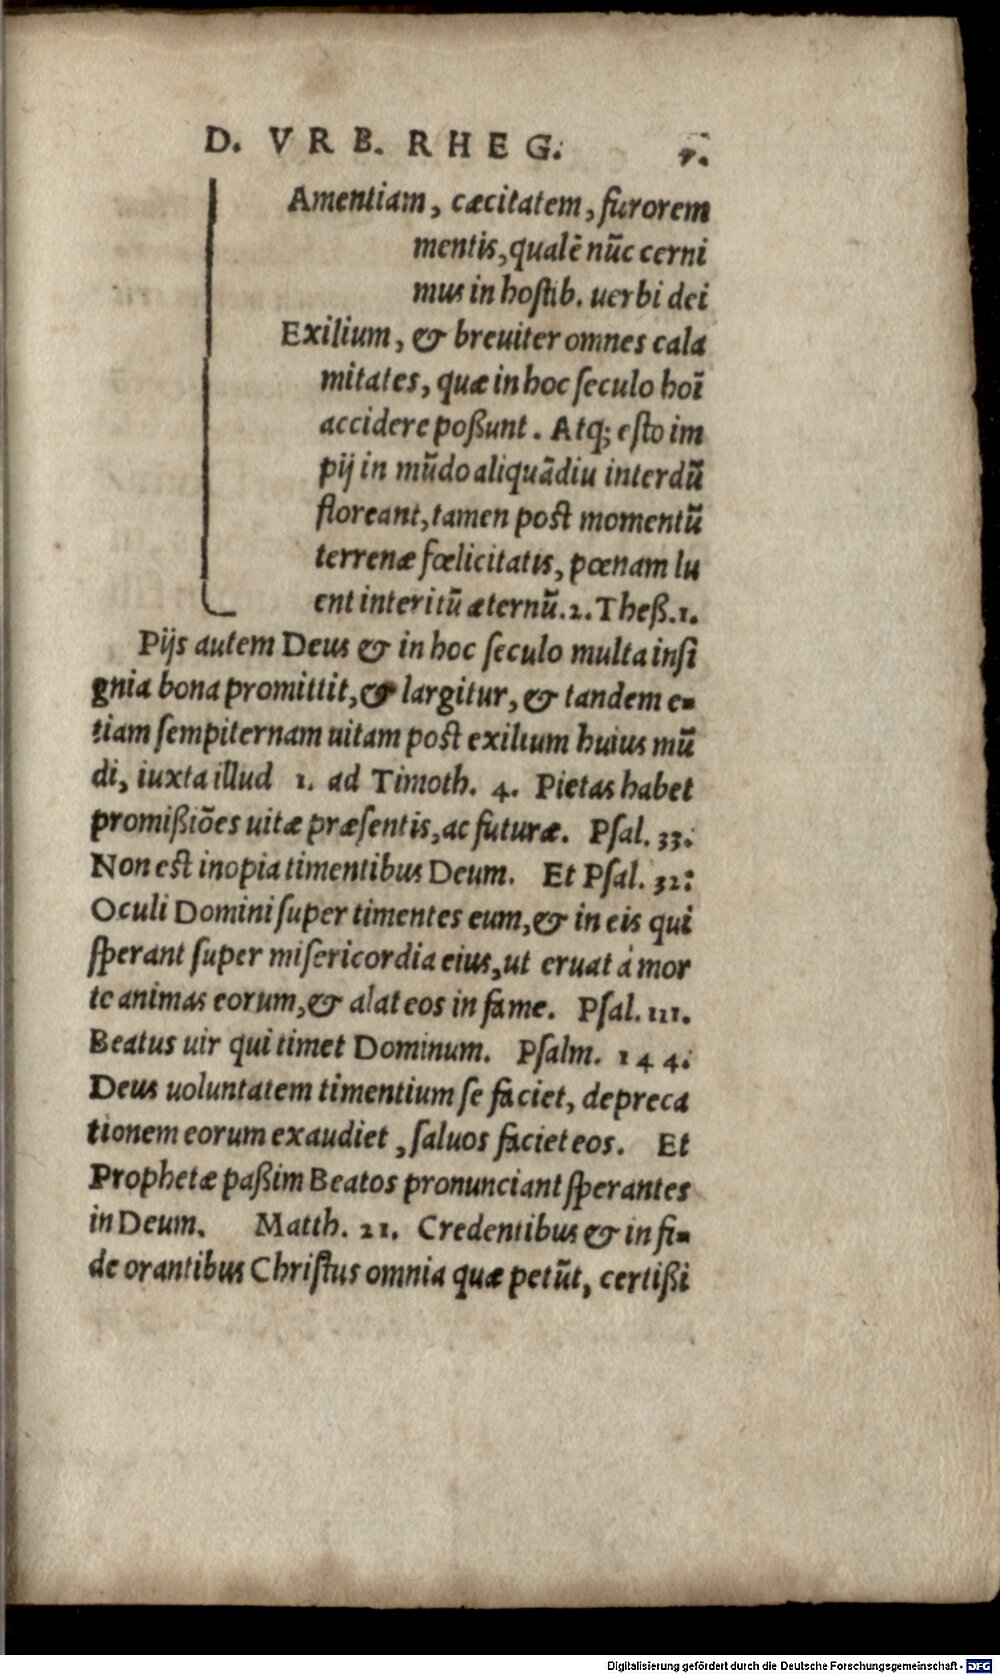 D. VRB. RHEG.
Amentiam, cæcitatem, furorem
mentis, qualē nūc cerni
mus in hostib. uerbi dei
Exilium, & breuiter omnes cala
mitates, quæ in hoc seculo hoī
accidere poßunt. Atq; esto im
pij in mūdo aliquādiu interdū
floreant, tamen post momentū
terrenæ fœlicitatis, pœnam lu
ent interitū æternū. 2. Theß. 1.
Pijs autem Deus & in hoc seculo multa insi
gnia bona promittit, & largitur, & tandem e-
tiam sempiternam uitam post exilium huius mū
di, iuxta illud 1. ad Timoth. 4. Pietas habet
promißiōes uitæ præsentis, ac futuræ. Psal. 33.
Non est inopia timentibus Deum. Et Psal. 32:
Oculi Domini super timentes eum, & in eis qui
sperant super misericordia eius, ut eruat à mor
te animas eorum, & alat eos in fame. Psal. 111.
Beatus uir qui timet Dominum. Psalm. 144.
Deus uoluntatem timentium se faciet, depreca
tionem eorum exaudiet, saluos faciet eos. Et
Prophetæ paßim Beatos pronunciant sperantes
in Deum. Matth. 21. Credentibus & in fi-
de orantibus Christus omnia quæ petūt, certißi
Digitalisierung gefördert durch die Deutsche Forschungsgemeinschaft - DFG